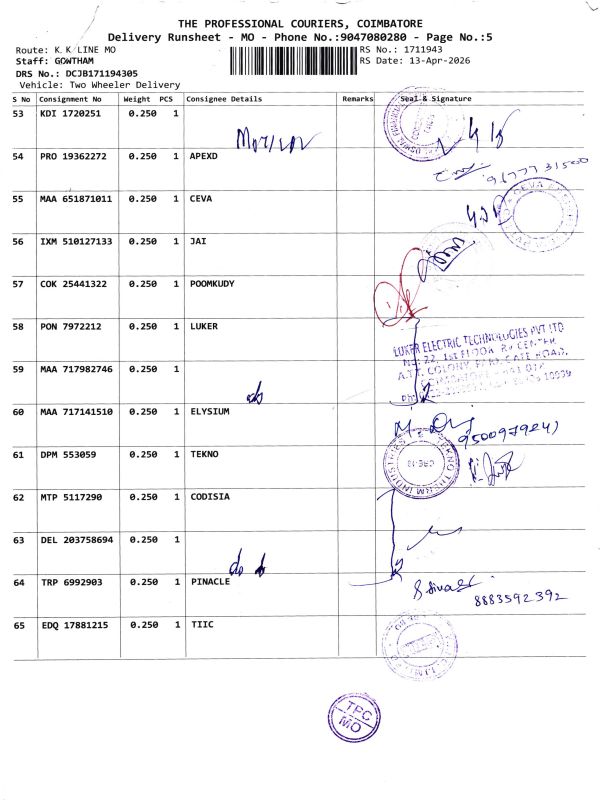 THE PROFESSIONAL COURIERS, COIMBATORE
Delivery Runsheet - MO - Phone No.:9047080280 - Page No.:5
Route: K.K/LINE MO
RS No.: 1711943
Staff: GOWTHAM
RS Date: 13-Apr-2026
DRS No.: DCJB171194305
Vehicle: Two Wheeler Delivery
S No Consignment No Weight PCS Consignee Details Remarks Seal & Signature
53 KDI 1720251 0.250 1
54 PRO 19362272 0.250 1 APEXD
96777 31500
55 MAA 651871011 0.250 1 CEVA
56 IXM 510127133 0.250 1 JAI
57 COK 25441322 0.250 1 POOMKUDY
58 PON 7972212 0.250 1 LUKER
LUKER ELECTRIC TECHNOLOGIES PVT LTD
59 MAA 717982746 0.250 1
do
60 MAA 717141510 0.250 1 ELYSIUM
61 DPM 553059 0.250 1 TEKNO
TEKNO THERM INDUSTRIES
62 MTP 5117290 0.250 1 CODISIA
63 DEL 203758694 0.250 1
do
64 TRP 6992903 0.250 1 PINACLE
8883592392
65 EDQ 17881215 0.250 1 TIIC
TPC
MO